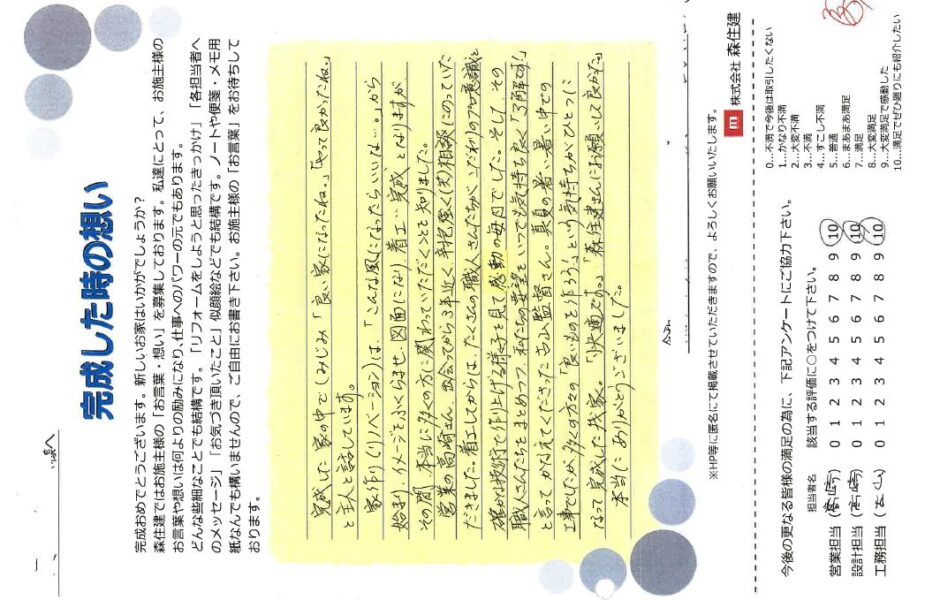 様へ
完成した時の想い
完成おめでとうございます。新しいお家はいかがでしょうか?
森住建ではお施主様の「お言葉・想い」を募集しております。私達にとって、お施主様の
お言葉や想いは何よりの励みになり、仕事へのパワーの元でもあります。
どんな些細なことでも結構です。「リフォームをしようと思ったきっかけ」「各担当者へ
のメッセージ」「お気づき頂いたこと」似顔絵などでも結構です。ノートや便箋・メモ用
紙なんでも構いませんので、ご自由にお書き下さい。お施主様の「お言葉」をお待ちして
おります。
完成した家の中でしみじみ「良い家になったね。」「やって良かったね。」
と主人と話しています。
家作り(リノベーション)は、「こんな風になったらいいな…。」から
始まり、イメージをふくらませ、図面になり着工、完成となりますが
その間、本当に多くの方に関わっていただくことを知りました。
営業の高崎さん、出会ってから3年近く、粘り強く(笑)相談にのっていた
だきました。着工してからは、たくさんの職人さんたちがこだわりのプロ意識と
確かな技術で作り上げる様子を見て感動の毎日でした。そして、その
職人さんたちをまとめつつ、私たちの要望をいつでも気持ち良く「了解です!」
と言ってかなえてくださった古山監督さん。真夏の暑い暑い中での
工事でしたが、多くの方々の「良いものを作ろう」という気持ちがひとつに
なって完成した我家。「快適です。」「森住建さんにお願いして良かった。」
本当にありがとうございました。
※HP等に匿名にて掲載させていただきますので、よろしくお願いいたします。
株式会社 森住建
今後の更なる皆様の満足の為に、下記アンケートにご協力下さい。
担当者名 該当する評価に○をつけて下さい。
営業担当 (高崎) 0 1 2 3 4 5 6 7 8 9 10
設計担当 (高崎) 0 1 2 3 4 5 6 7 8 9 10
工務担当 (古山) 0 1 2 3 4 5 6 7 8 9 10
0…不満で今後は取引したくない
1…かなり不満
2…大変不満
3…不満
4…すこし不満
5…普通
6…まあまあ満足
7…満足
8…大変満足
9…大変満足で感動した
10…満足でぜひ廻りにも紹介したい